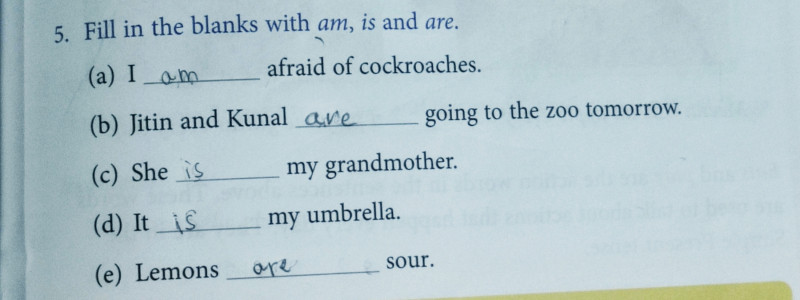 5. Fill in the blanks with am, is and are.
(a) I am afraid of cockroaches.
(b) Jitin and Kunal are going to the zoo tomorrow.
(c) She is my grandmother.
(d) It is my umbrella.
(e) Lemons are sour.